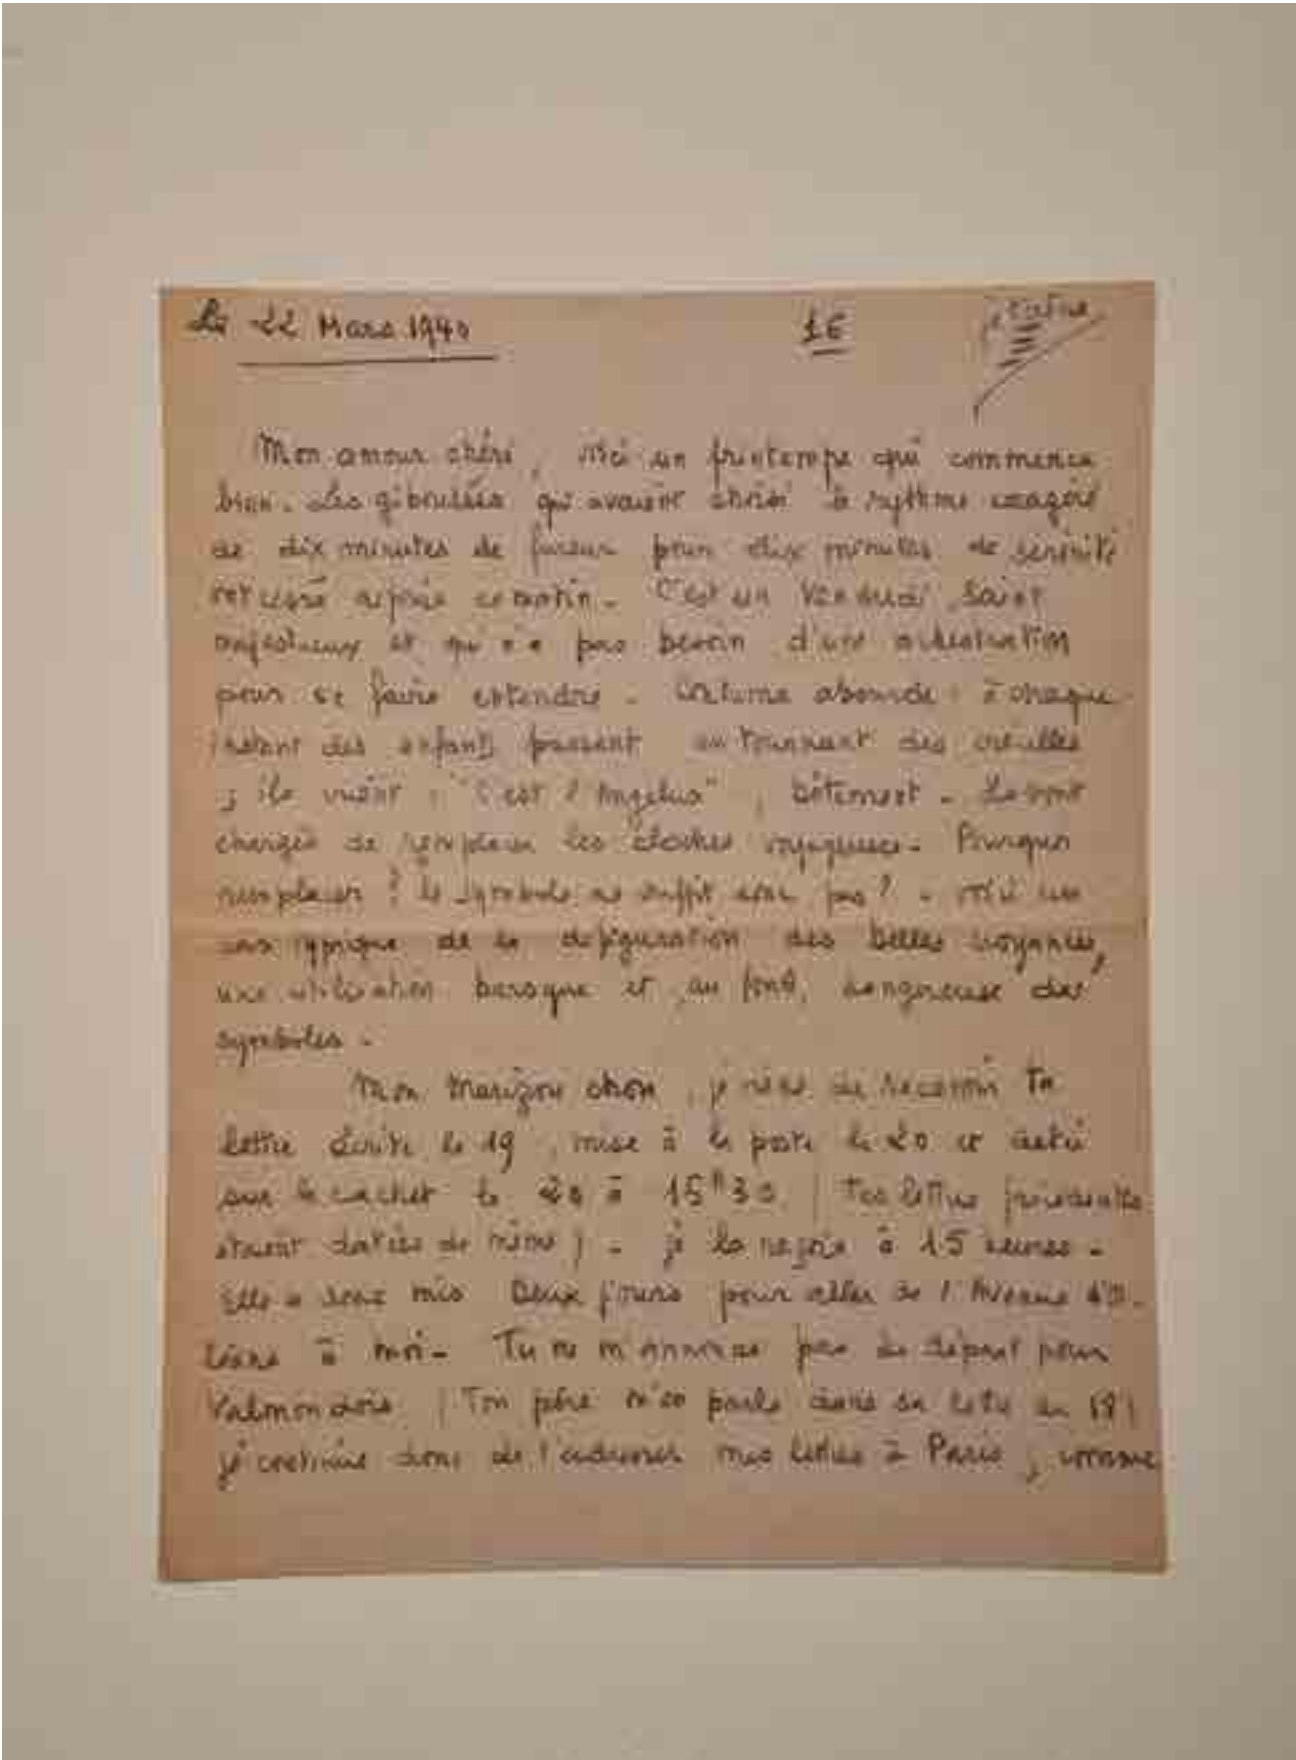 Le 22 Mars 1940 16
Mon amour chéri, voici un printemps qui commence
bien. Les giboulées qui avaient choisi le rythme exagéré
de dix minutes de fureur pour dix minutes de sérénité
ont cessé depuis ce matin. C'est un Vendredi Saint
majestueux et qui n'a pas besoin d'une orchestration
pour se faire entendre. Coutume absurde : à chaque
instant des enfants passent en tournant des crécelles
; ils crient : "C'est l'Angelus", bêtement. Ils sont
chargés de remplacer les cloches voyageuses. Pourquoi
remplacer ? le symbole ne suffit donc pas ? - voici un
cas typique de la défiguration des belles croyances,
une utilisation baroque et, au fond, dangereuse des
symboles.
Mon chon, je viens de recevoir ta
lettre écrite le 19, mise à la poste le 20 et
sur le cachet le 20 à 15h30 (tes lettres précédentes
étaient datées de même). je la reçois à 15 heures.
Elle a donc mis deux jours pour aller de l'Avenue d'Or-
léans à moi. Tu ne m'annonces pas de départ pour
Valmondois (Ton père m'en parle dans sa lettre du 18)
je continue donc de t'adresser mes lettres à Paris ; comme